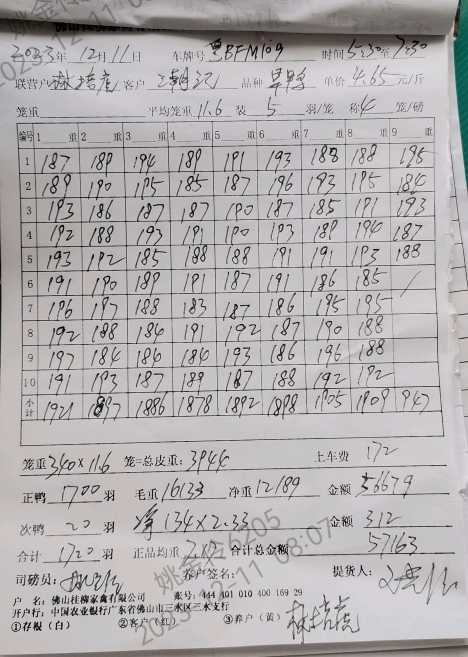 2023年 12月11日 车牌号 粤BFM109 时间 5:30至7:30
联营户 客户 品种 单价 4.65 元/斤
笼重 平均笼重 11.6 装 5 羽/笼 称 4 笼/磅
编号 1 重 2 重 3 重 4 重 5 重 6 重 7 重 8 重 9 重
1 187 189 194 189 191 193 188 188 195
2 189 190 195 185 187 196 193 195 184
3 193 186 187 187 190 187 185 191 193
4 192 188 193 191 190 193 189 194 187
5 193 192 185 188 188 191 191 193 188
6 191 190 189 191 187 191 186 185 /
7 196 197 188 183 187 186 195 195
8 192 188 184 191 192 187 190 188
9 197 184 186 184 193 186 196 188
10 191 193 187 189 187 188 192 192
小计 1921 1897 1886 1878 1892 1898 1905 1909 947
笼重 340×11.6 笼=总皮重: 3944 上车费 172
正鸭 1700 羽 毛重 16133 净重 12189 金额 56679
次鸭 20 羽 净 134×2.33 金额 312
合计 1720 羽 正品均重 合计总金额 57163
司磅员: 养户签名: 提货人:
户 名: 佛山桂柳家禽有限公司 账号: 444 401 010 400 169 29
开户行: 中国农业银行广东省佛山市三水区三水支行
①存根(白) ②客户(红) ③养户(黄)
姚金玲6205
2023-12-11 08:07